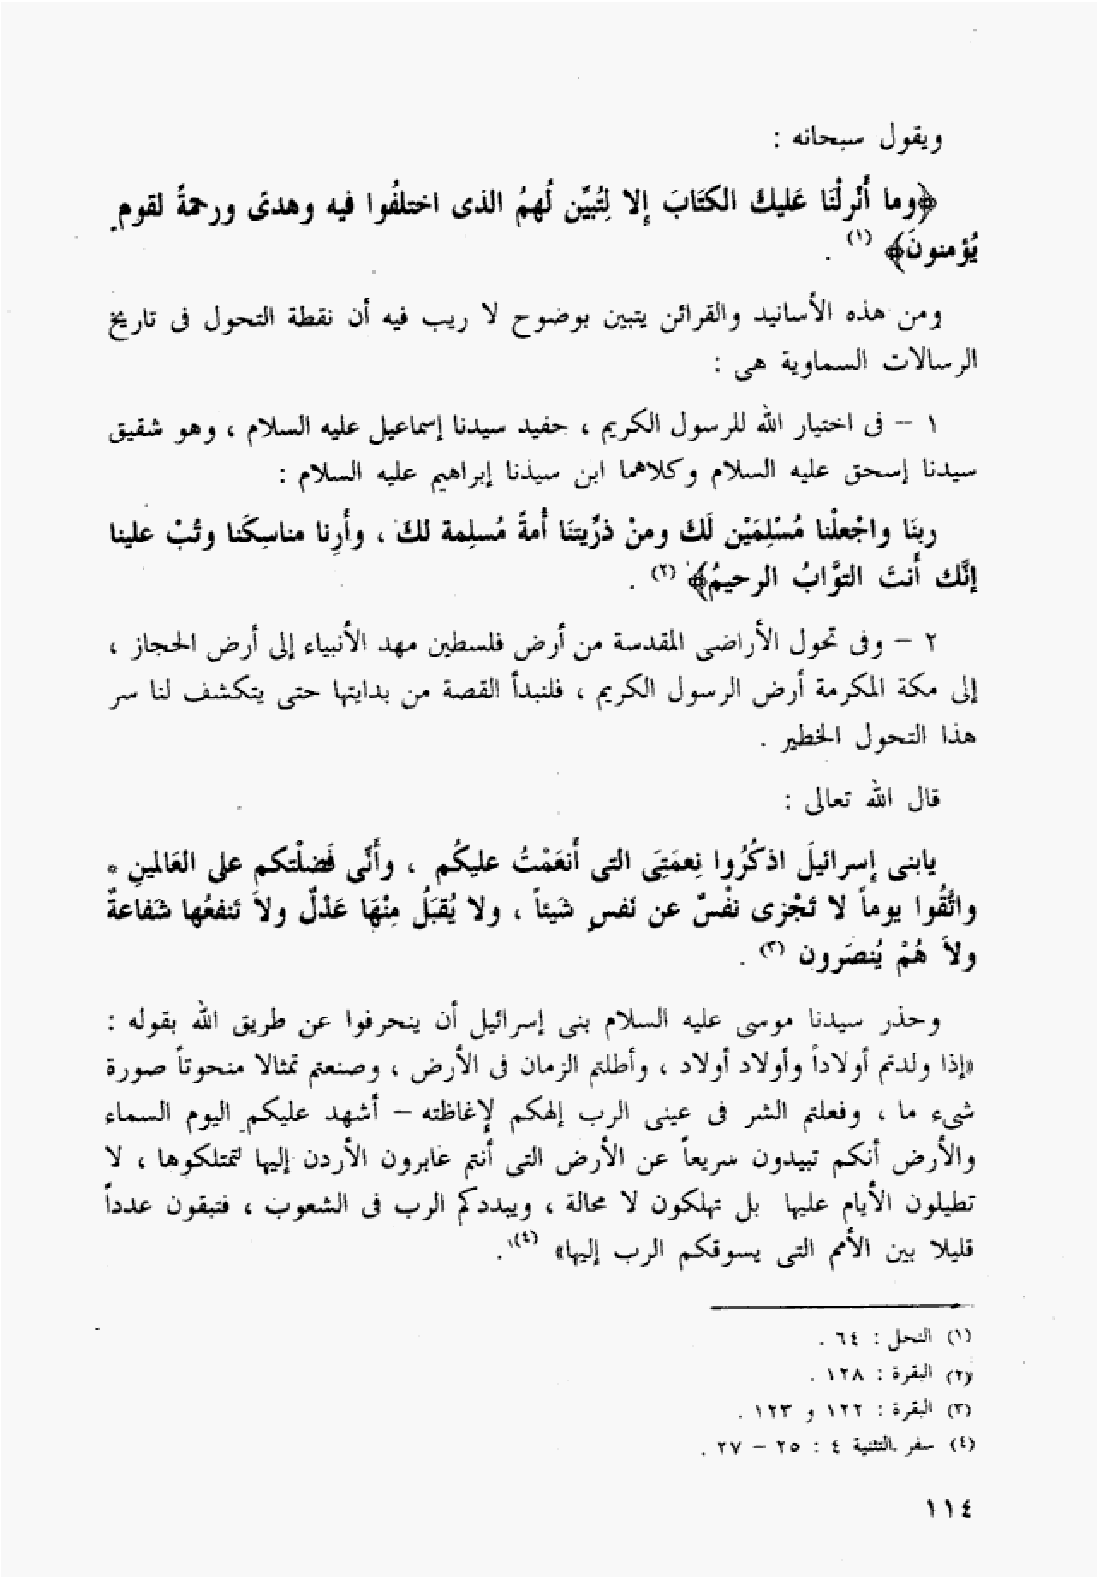 ويقول سبحانه :
﴿وما أَنْزلْنَا عَليكَ الكتَابَ إلا لِتُبيِّن لُهمُ الذى اختلفُوا فيه وهدىً ورحمةً لقومٍ
يُؤمنونَ﴾ (١) .
ومن هذه الأسانيد والقرائن يتبين بوضوح لا ريب فيه أن نقطة التحول فى تاريخ
الرسالات السماوية هى :
١ – فى اختيار الله للرسول الكريم ، حفيد سيدنا إسماعيل عليه السلام ، وهو شقيق
سيدنا إسحق عليه السلام وكلاهما ابن سيدنا إبراهيم عليه السلام :
ربنَا واجْعلْنا مُسْلِمَيْن لَكَ ومنْ ذرِّيتنَا أُمةً مُسلِمة لكَ ، وأَرِنا مناسِكَنا وتُبْ علينا
إنَّك أَنتَ التوَّابُ الرحيمُ﴾ (٢) .
٢ – وفى تحول الأراضى المقدسة من أرض فلسطين مهد الأنبياء إلى أرض الحجاز ،
إلى مكة المكرمة أرض الرسول الكريم ، فلنبدأ القصة من بدايتها حتى يتكشف لنا سر
هذا التحول الخطير .
قال الله تعالى :
يابنى إسرائيلَ اذكُرُوا نِعمَتِىَ التى أَنعَمْتُ عليكُم ، وأَنِّى فَضلْتكم على العَالمينِ *
واتَّقُوا يوماً لا تَجْزى نفْسٌ عن نَفسٍ شَيئاً ، ولا يُقبَلُ مِنْهَا عَدْلٌ ولاَ تَنفعُها شَفاعةٌ
ولاَ هُمْ يُنصَرون (٣) .
وحذر سيدنا موسى عليه السلام بنى إسرائيل أن ينحرفوا عن طريق الله بقوله :
«إذا ولدتم أولاداً وأولاد أولاد ، وأطلتم الزمان فى الأرض ، وصنعتم تمثالا منحوتاً صورة
شىء ما ، وفعلتم الشر فى عينى الرب إلهكم لإغاظته – أشهد عليكم اليوم السماء
والأرض أنكم تبيدون سريعاً عن الأرض التى أنتم عابرون الأردن إليها لتمتلكوها ، لا
تطيلون الأيام عليها بل تهلكون لا محالة ، ويبددكم الرب فى الشعوب ، فتبقون عدداً
قليلا بين الأمم التى يسوقكم الرب إليها» (٤) .
(١) النحل : ٦٤ .
(٢) البقرة : ١٢٨ .
(٣) البقرة : ١٢٢ و ١٢٣ .
(٤) سفر التثنية ٤ : ٢٥ – ٢٧ .
١١٤